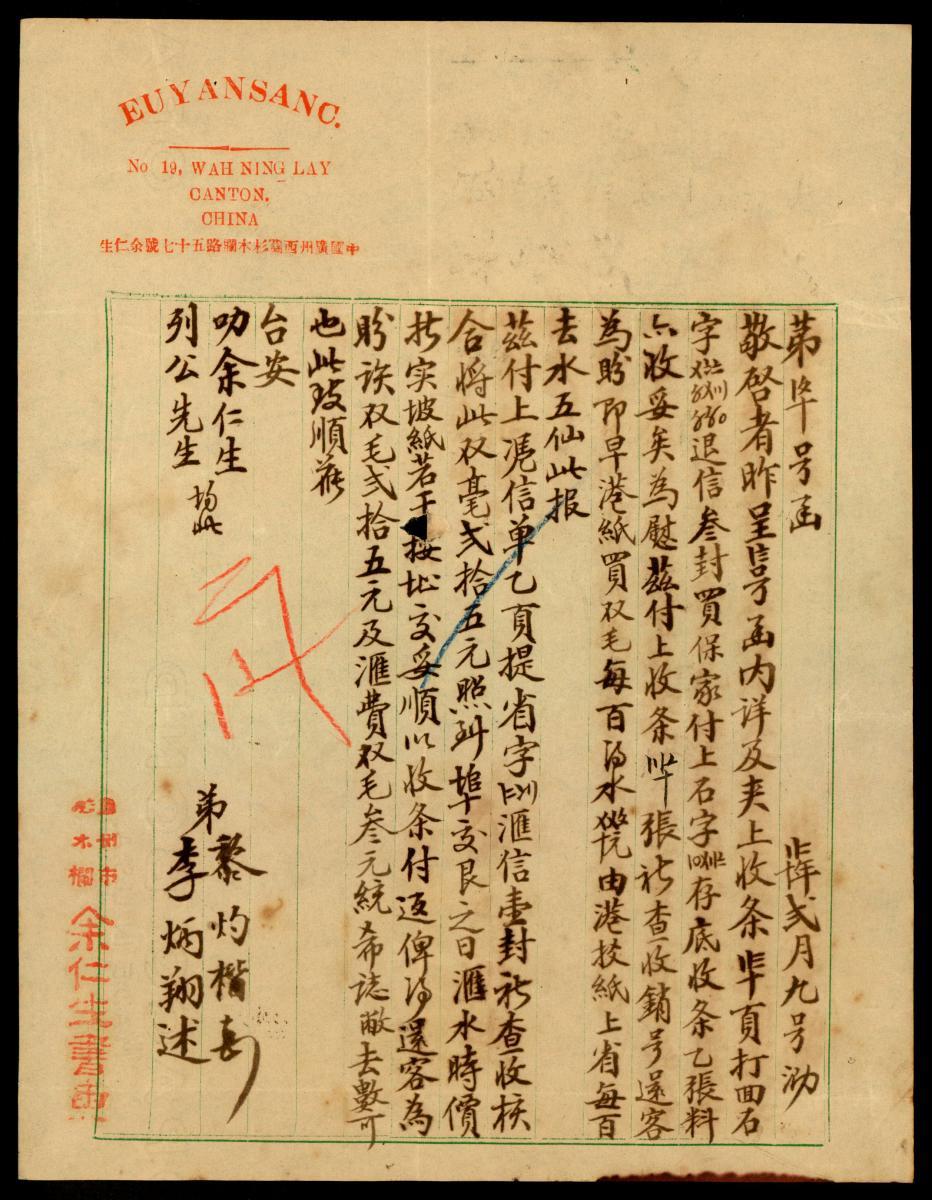 EUYANSANG.
No 19, WAH NING LAY
CANTON,
CHINA
中國廣州西關杉木欄路五十七號余仁生
第 号函
弍月九号泐
敬啓者昨呈 号函内详及夹上收条 頁打面石
字 退信叁封買保家付上石字 存底收条乙張料
亦收妥矣為慰茲付上收条 張祈查收銷号還客
為盼即早港紙買双毛每百 水 由港 紙上省每百
去水五仙此报
茲付上凴信单乙頁提省字 滙信壹封祈查收核
合将此双毫弍拾五元照 埠交艮之日滙水時價
折实坡紙若干按址交妥順以收条付返俾 還客為
盼该双毛弍拾五元及滙費双毛叁元統希誌敝去數可
也此致順
台安
叻余仁生
列公先生
弟 黎灼楷
李炳翔述
余仁生書柬